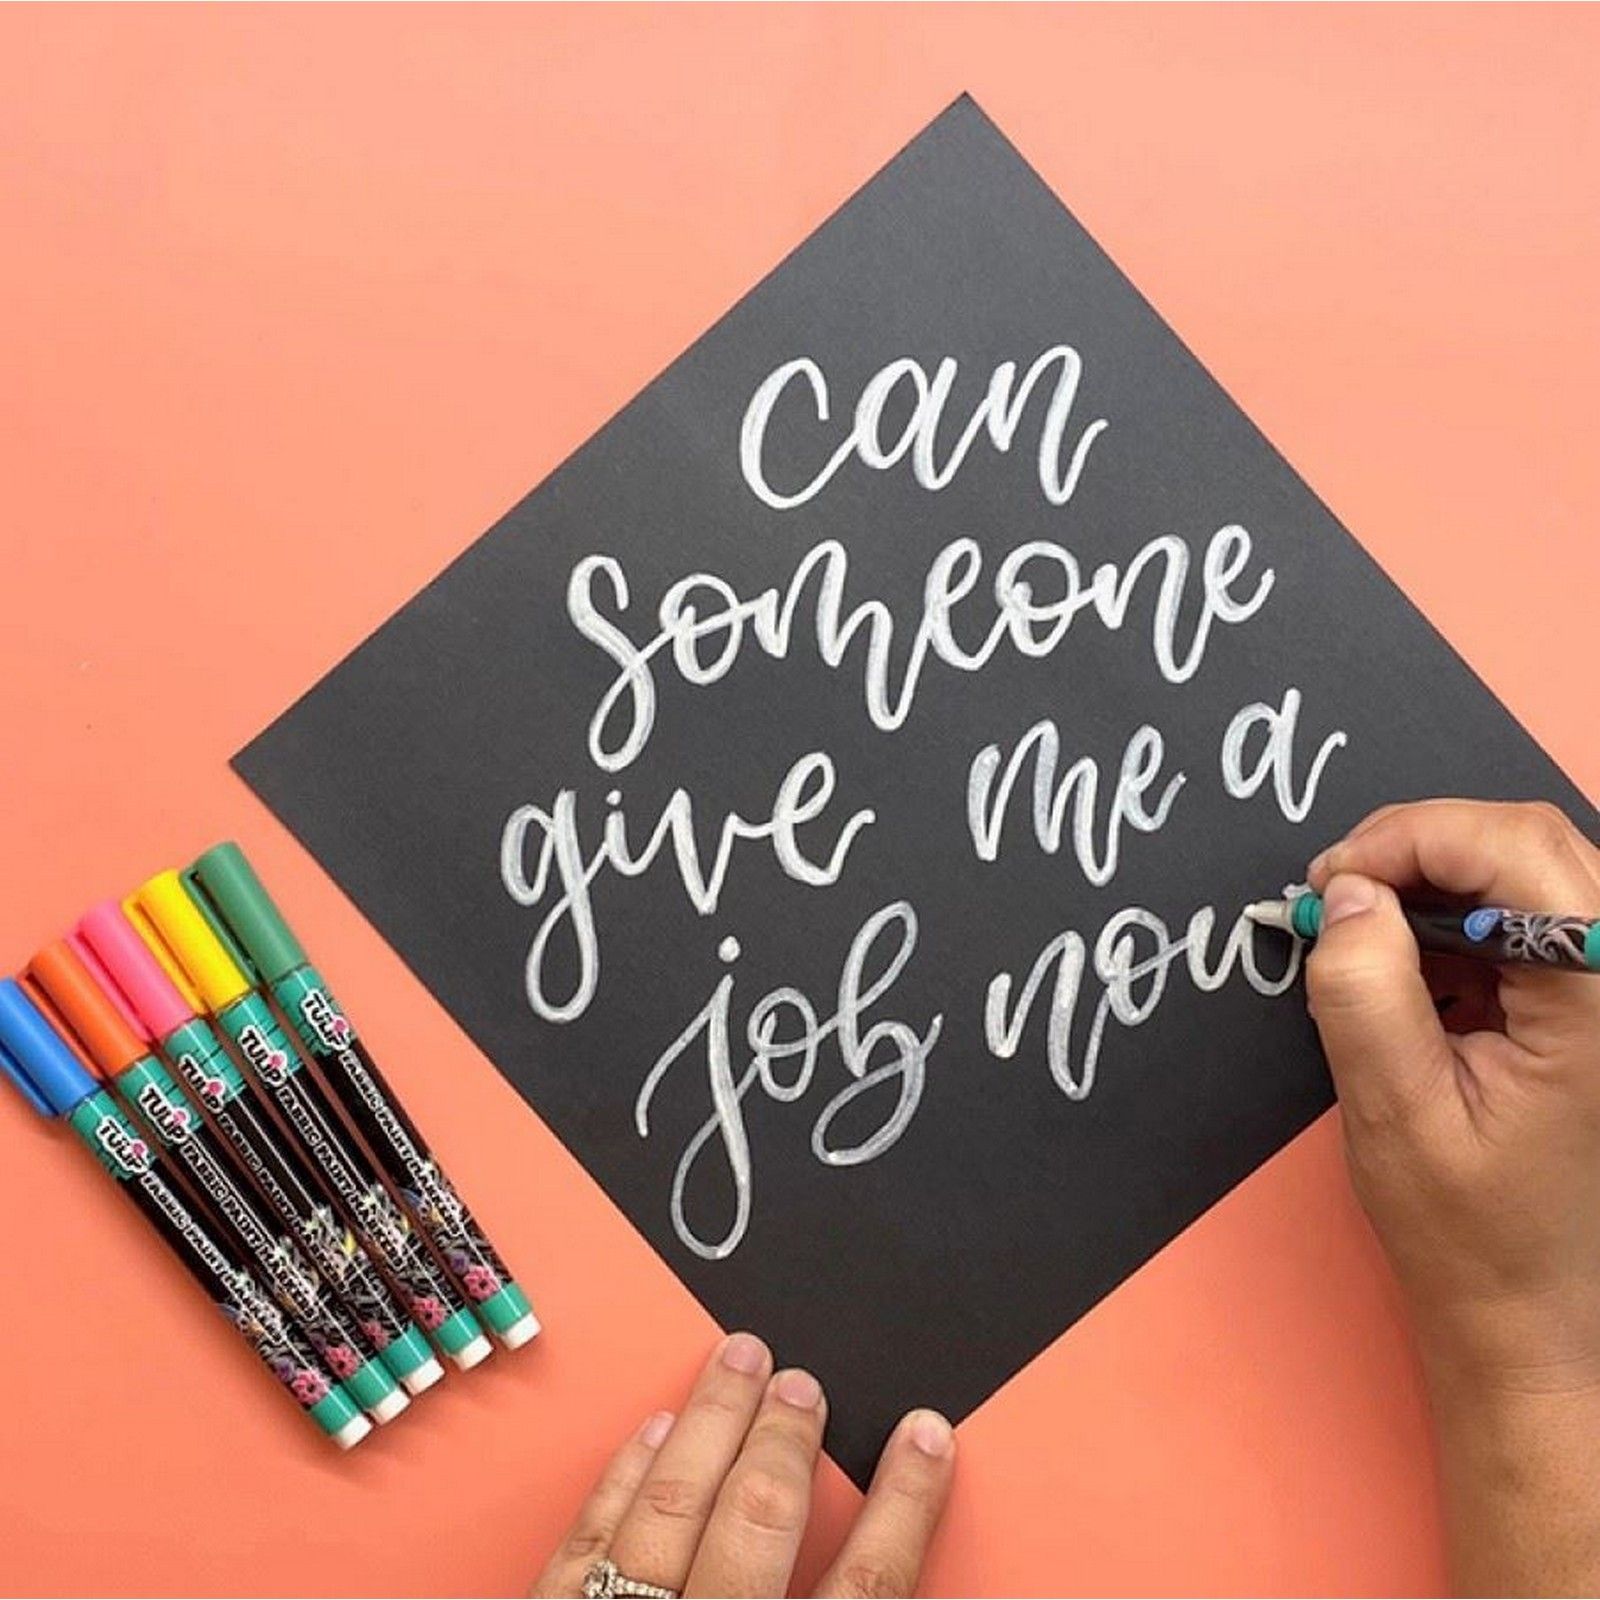 can
someone
give me a
job now
TULIP FABRIC PAINT MARKERS
TULIP FABRIC PAINT MARKERS
TULIP FABRIC PAINT MARKERS
TULIP FABRIC PAINT MARKERS
TULIP FABRIC PAINT MARKERS